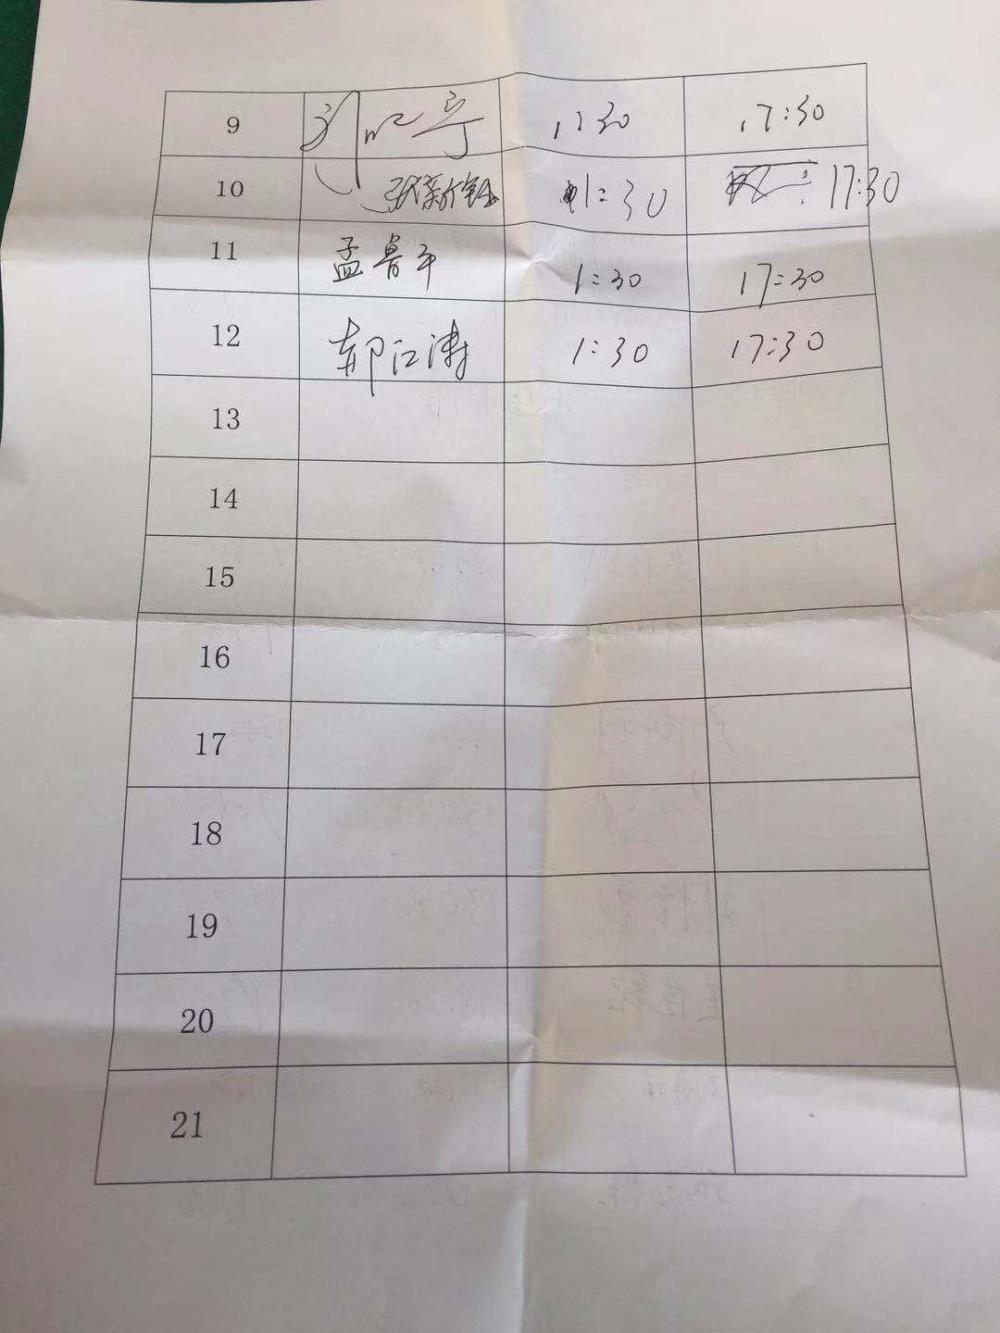 9 1:30 17:30
10 1:30 17:30
11 孟鲁平 1:30 17:30
12 郝江涛 1:30 17:30
13
14
15
16
17
18
19
20
21